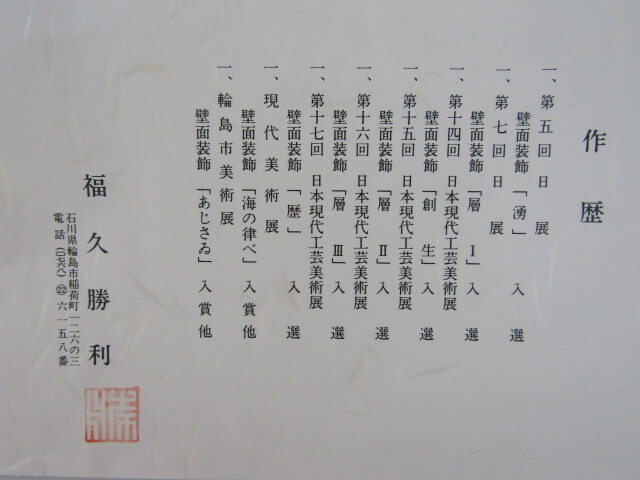 作歴
一、第五回日展
壁面装飾「湧」入選
一、第七回日展
壁面装飾「層 Ⅰ」入選
一、第十四回 日本現代工芸美術展
壁面装飾「創生」入選
一、第十五回 日本現代工芸美術展
壁面装飾「層 Ⅱ」入選
一、第十六回 日本現代工芸美術展
壁面装飾「層 Ⅲ」入選
一、第十七回 日本現代工芸美術展
壁面装飾「歴」入選
一、現代美術展
壁面装飾「海の律べ」入賞他
一、輪島市美術展
壁面装飾「あじさゐ」入賞他
福久勝利
石川県輪島市稲荷町一二六の三
電話(〇七六八)㉒六一五八番